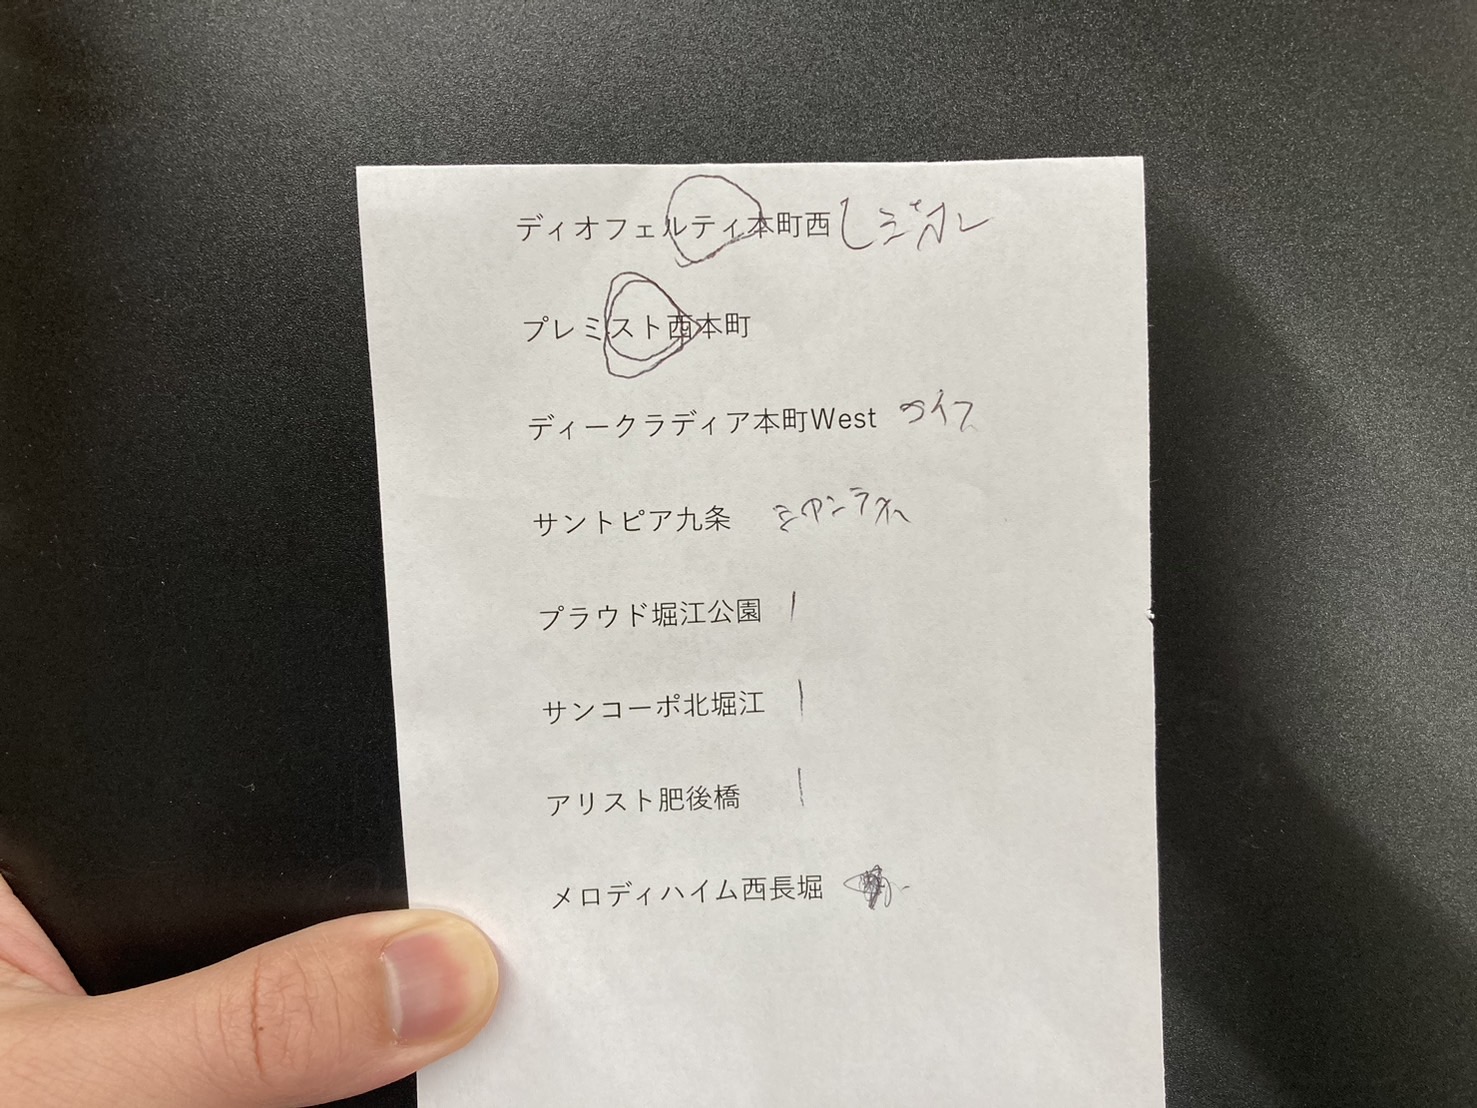 ディオフェルティ本町西
プレミスト西本町
ディークラディア本町West ライフ
サントピア九条
プラウド堀江公園
サンコーポ北堀江
アリスト肥後橋
メロディハイム西長堀